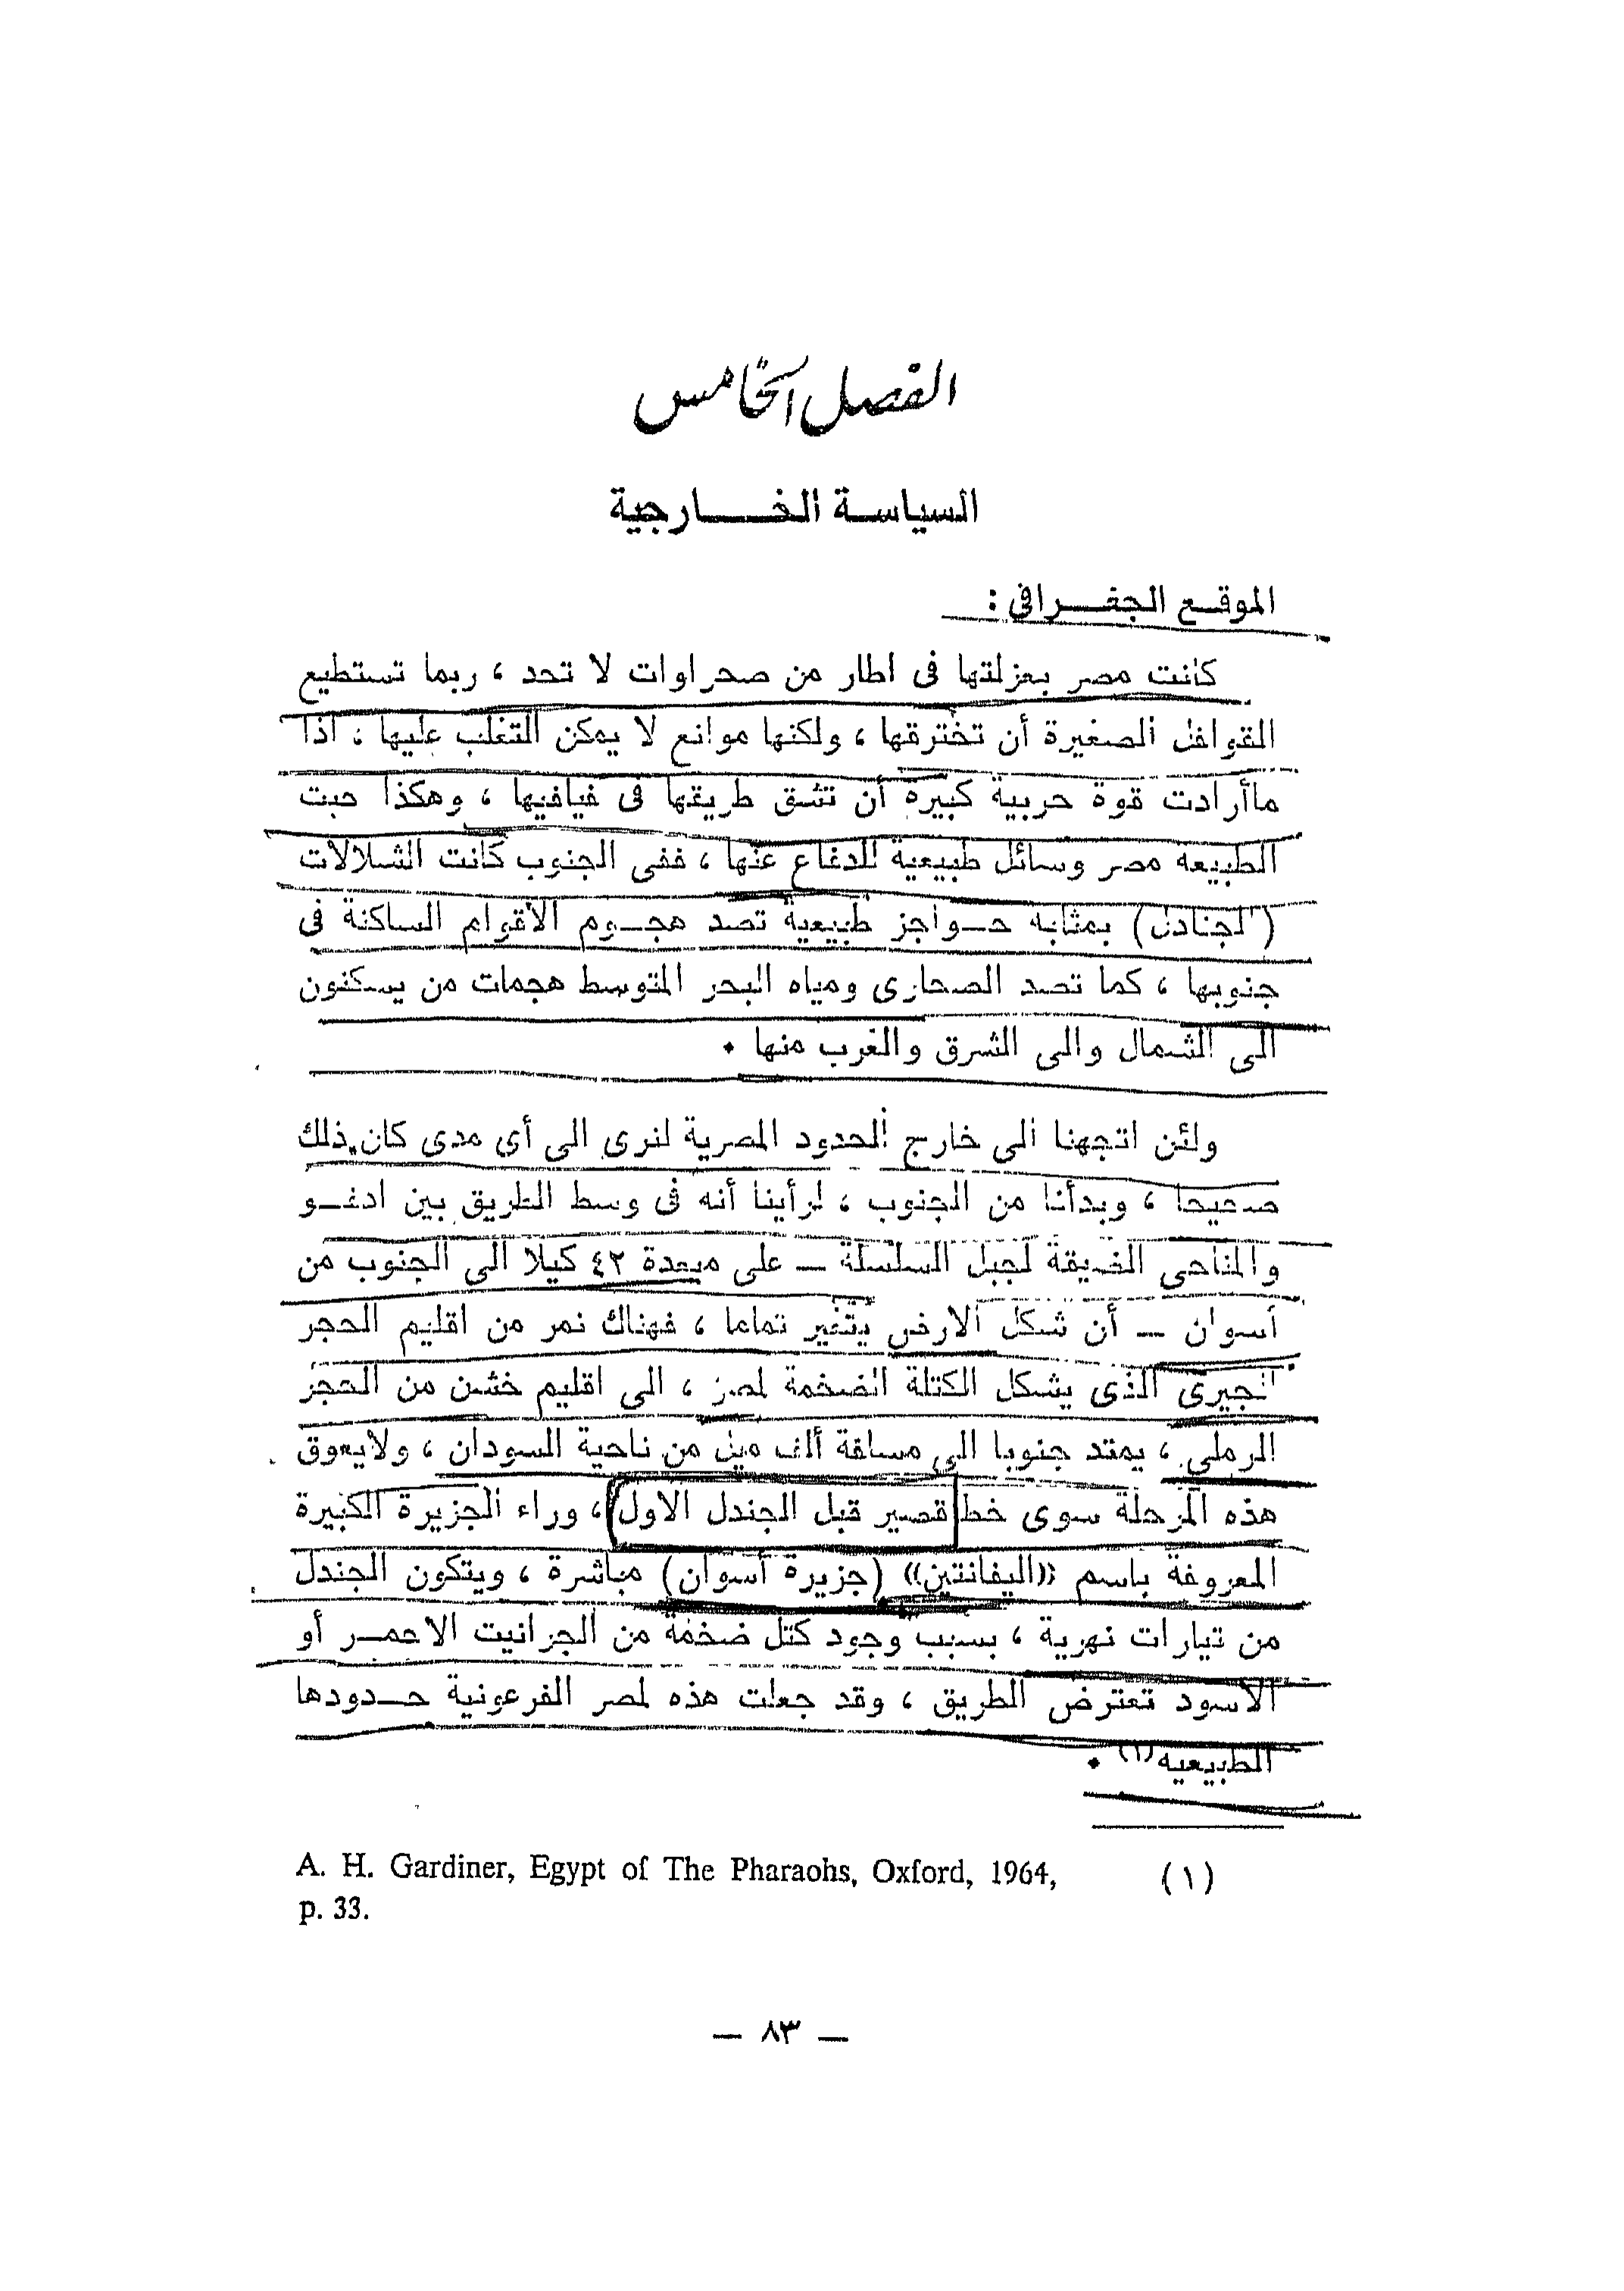 الفصل الخامس
السياسة الخارجية
الموقع الجغرافى :
كانت مصر بعزلتها فى اطار من صحراوات لا تحد ، ربما تستطيع
القوافل الصغيرة أن تخترقها ، ولكنها موانع لا يمكن التغلب عليها ، اذا
ماأرادت قوة حربية كبيرة أن تشق طريقها فى فيافيها ، وهكذا حبت
الطبيعه مصر وسائل طبيعية للدفاع عنها ، ففى الجنوب كانت الشلالات
(الجنادل) بمثابه حواجز طبيعية تصد هجوم الأقوام الساكنة فى
جنوبها ، كما تصد الصحارى ومياه البحر المتوسط هجمات من يسكنون
الى الشمال والى الشرق والغرب منها ٠
ولئن اتجهنا الى خارج الحدود المصرية لنرى الى أى مدى كان ذلك
صحيحا ، وبدأنا من الجنوب ، لرأينا أنه فى وسط الطريق بين ادفو
والمناحى الضيقة لجبل السلسلة — على مبعدة ٤٢ كيلا الى الجنوب من
أسوان — أن شكل الارض يتغير تماما ، فهناك نمر من اقليم الحجر
الجيرى الذى يشكل الكتلة الضخمة لمصر ، الى اقليم خشن من الحجر
الرملى ، يمتد جنوبا الى مسافة ألف ميل من ناحية السودان ، ولايعوق
هذه المرحلة سوى خط قصير قبل الجندل الاول ، وراء الجزيرة الكبيرة
المعروفة باسم «اليفانتين» (جزيرة أسوان) مباشرة ، ويتكون الجندل
من تيارات نهرية ، بسبب وجود كتل ضخمة من الجرانيت الاحمر أو
الأسود تعترض الطريق ، وقد جعلت هذه لمصر الفرعونية حدودها
الطبيعيه(١) ٠
(١) A. H. Gardiner, Egypt of The Pharaohs, Oxford, 1964,
p. 33.
— ٨٣ —